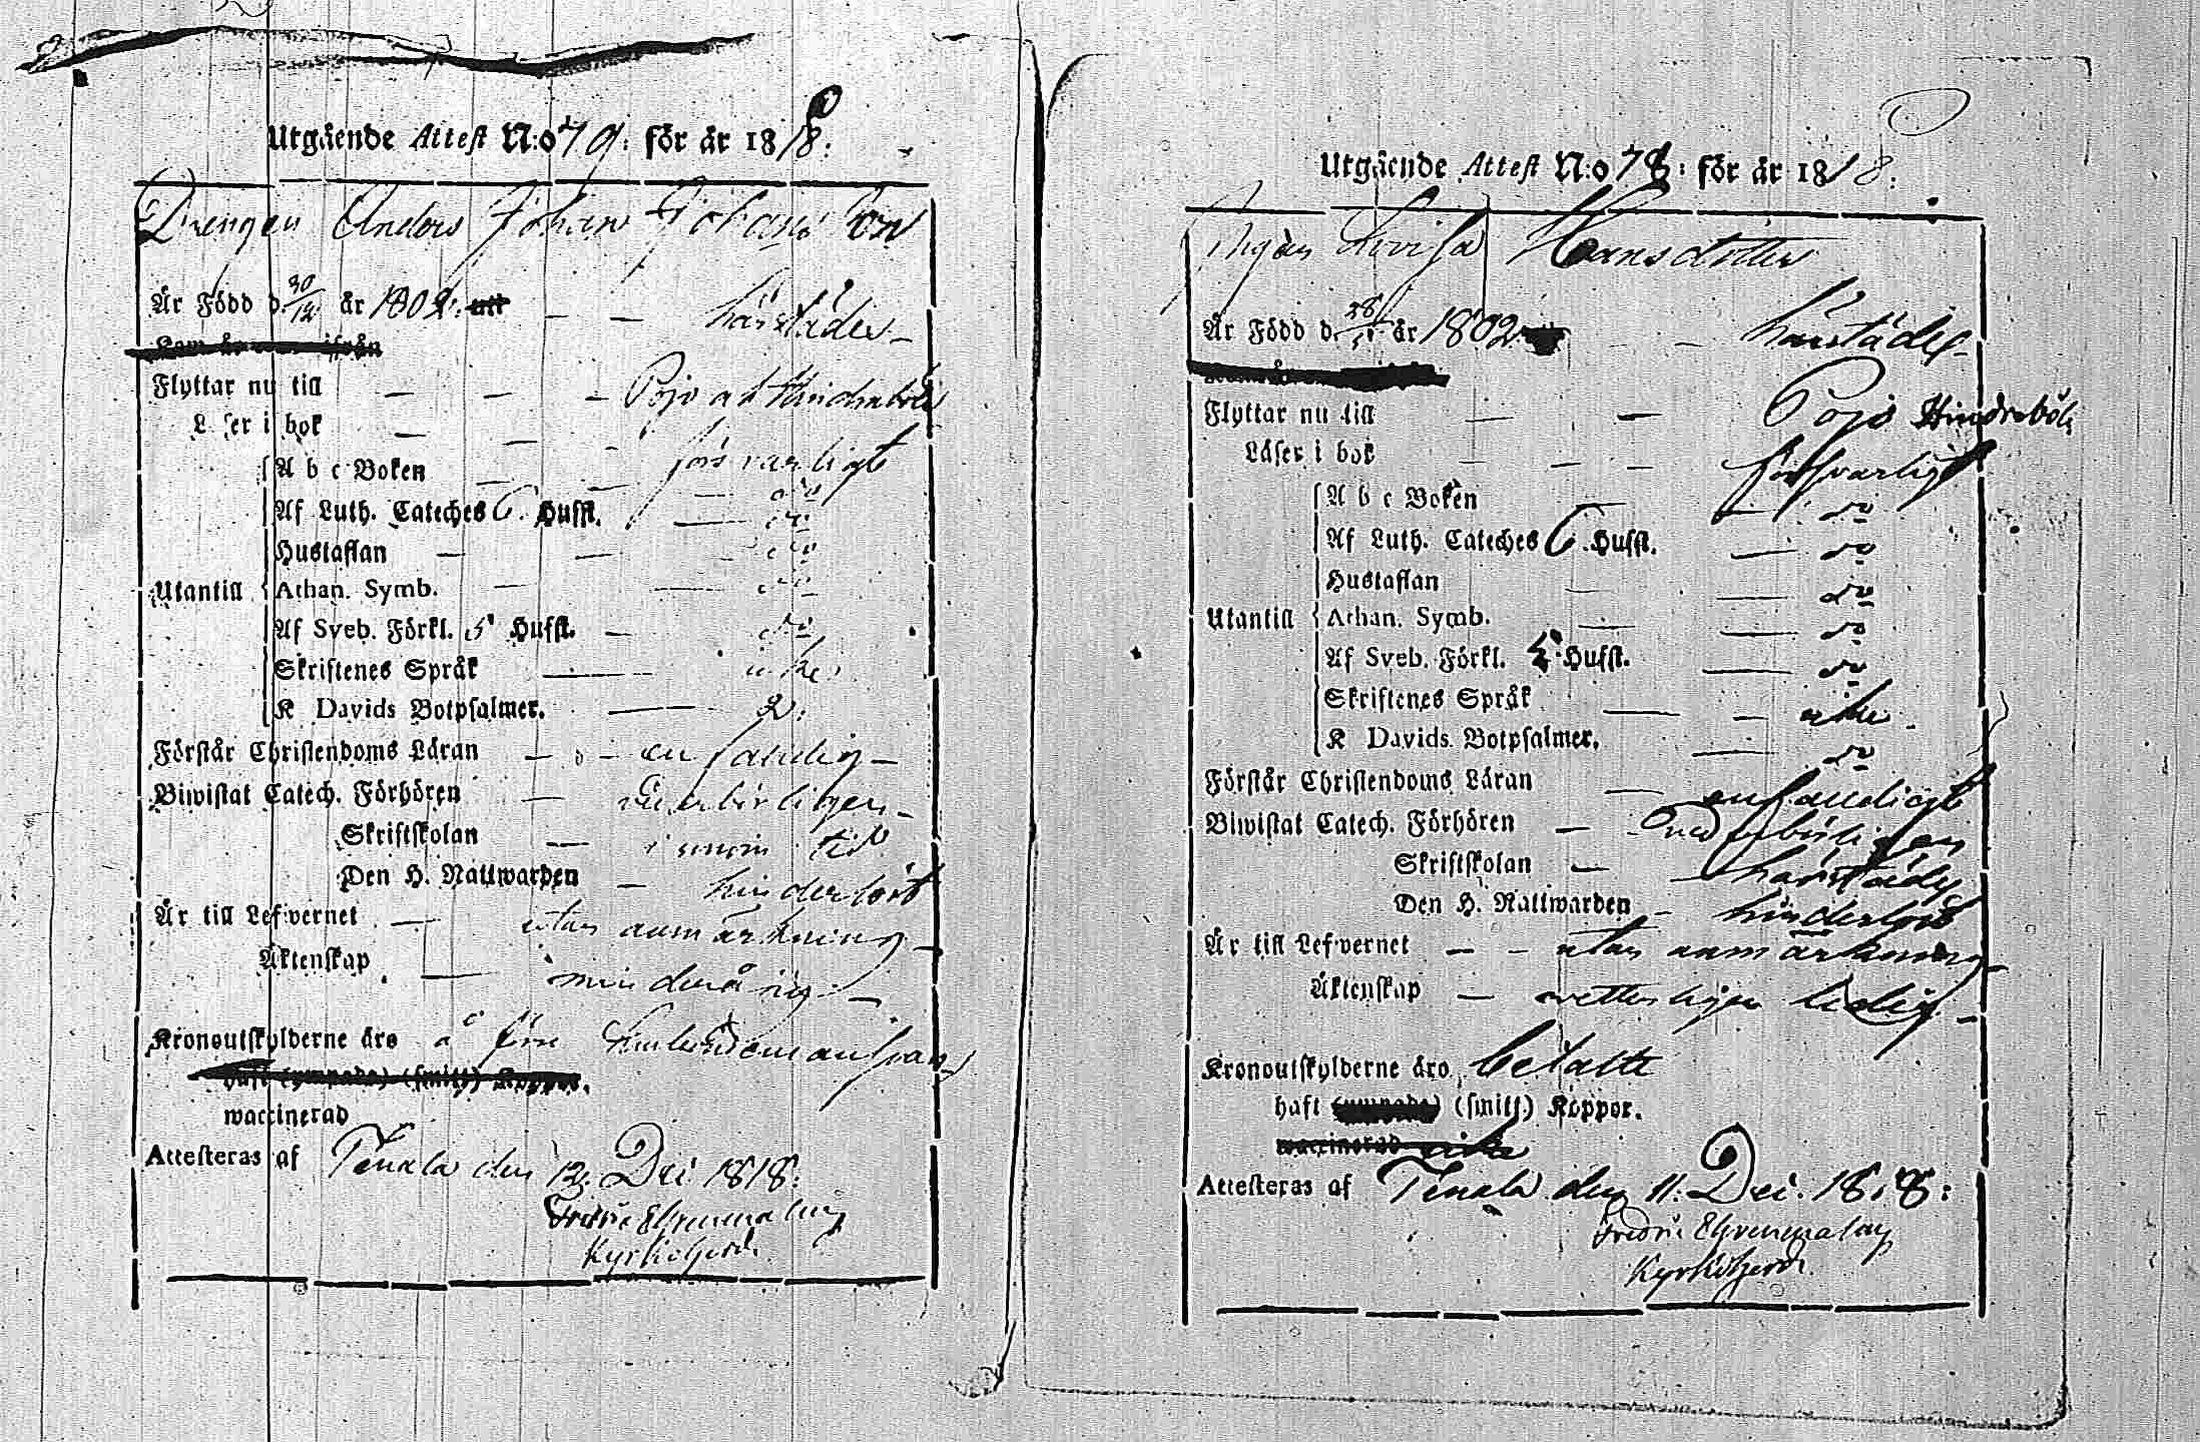 Utgående Attest N:o 79: för år 1818:
Drengen Anders Johan Johansson
Är Född d. 30/12 år 1802. härstädes
Flyttar nu till Pojo at Hindrabole
Läser i bok försvarligt
A b c Boken do
Af Luth. Cateches 6. Hufst. do
Hustaflan do
Utantill Athan. Symb. do
Af Sveb. Förkl. 5 Hufst. do
Skriftenes Språk icke
K Davids Botpsalmer. 2.
Förstår Christendoms Läran enfaldig
Biwistat Catech. Förhören
Skriftskolan i tid
Den H. Nattwarden hinderlöst
Är till Lefvernet utan anmärkning
Äktenskap minderårig
Kronoutskylderne äro å förre
waccinerad
Attesteras af Tenala den 12. Dec. 1818:
Fredric Ehrenmalm
Kyrkoherde
Utgående Attest N:o 78: för år 1818:
Pigan Lovisa Hansdotter
Är Född d. 28/ år 1802 härstädes
Flyttar nu till Pojo Hindraböle
Läser i bok försvarligt
A b c Boken do
Af Luth. Cateches 6. Hufst. do
Hustaflan do
Utantill Athan. Symb. do
Af Sveb. Förkl. Hufst. do
Skriftenes Språk icke
K Davids Botpsalmer. do
Förstår Christendoms Läran enfaldigt
Biwistat Catech. Förhören
Skriftskolan härstädes
Den H. Nattwarden hinderlöst
Är till Lefvernet utan anmärkning
Äktenskap ledig
Kronoutskylderne äro betalte
haft (smitt.) Koppor.
Attesteras af Tenala den 11. Dec. 1818:
Fredric Ehrenmalm
Kyrkoherde